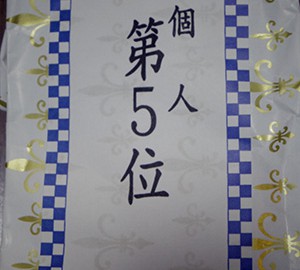 個人
第5位